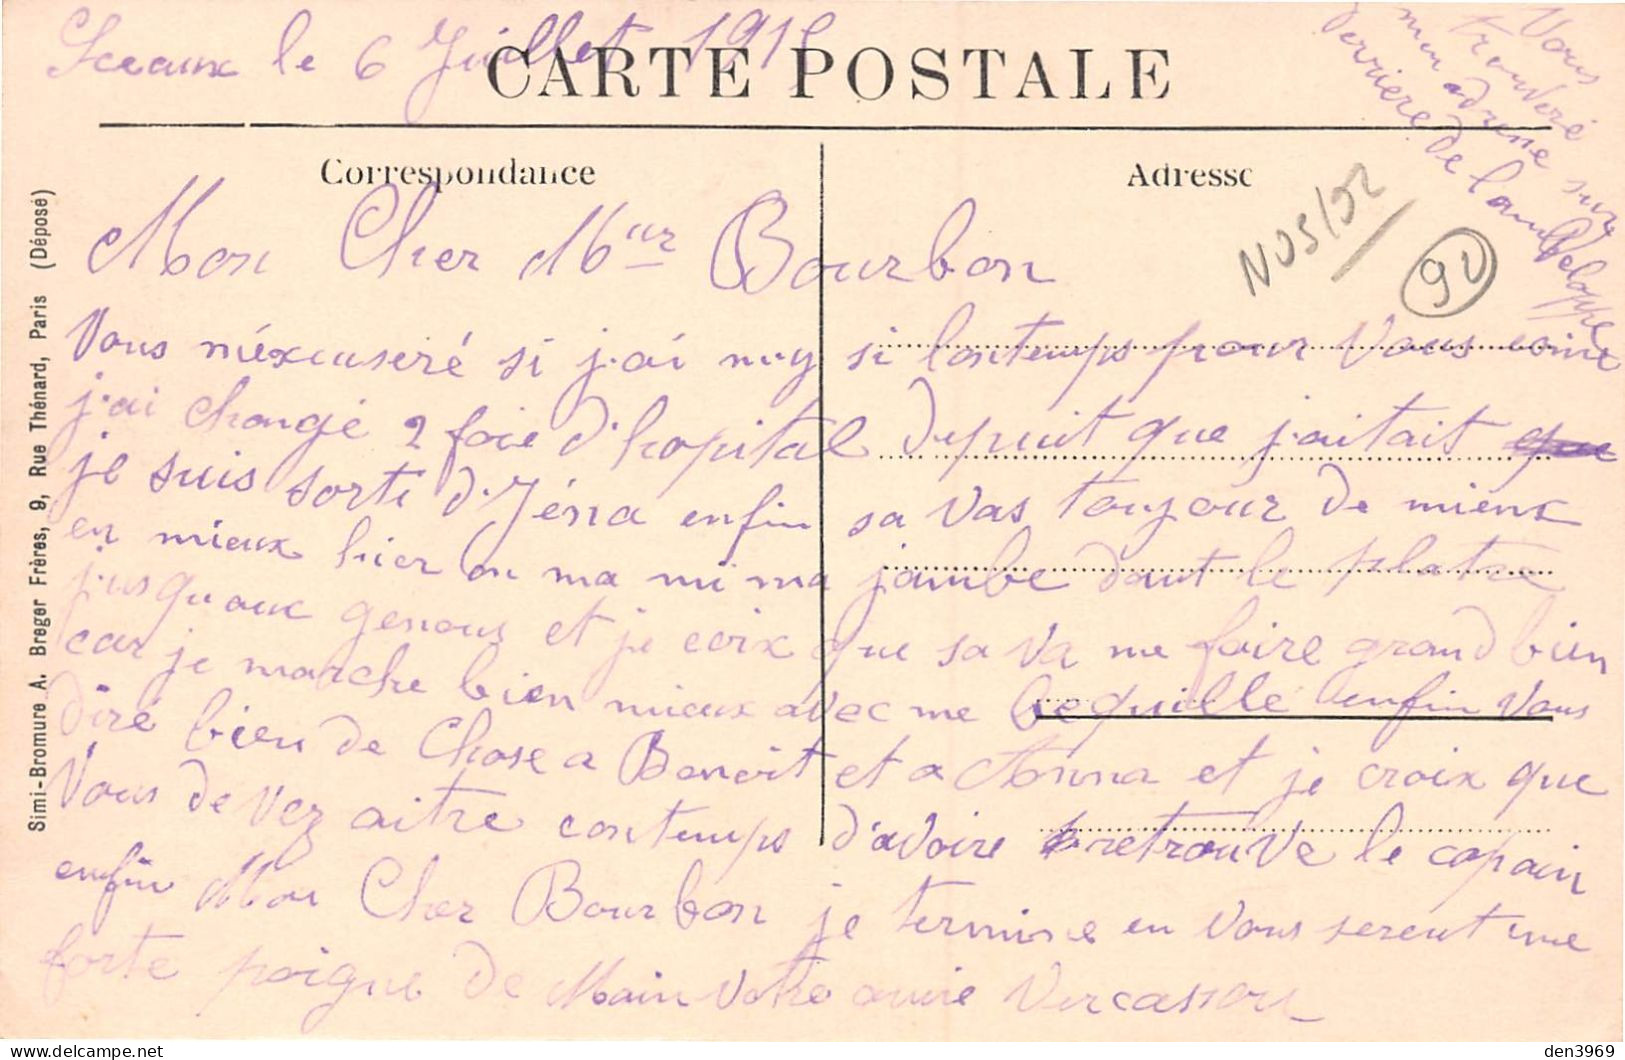 Sceaux le 6 Juillet 191
CARTE POSTALE
Vous
trouveré
mon adrese sur
derriere de l'anveloppe
Correspondance
Adresse
NOS/02
90
Mon Cher Mr Bourbon
Vous méxcuseré si j'ai my si lontemps pour Vous
j'ai changé 2 foie d'hopital depuit que j'aitait que
je suis sorti d'Jéna enfin sa vas toujour de mieux
en mieux hier on ma mi ma jambe dant le platre
jusquaux genous et je croix que sa va me faire grand bien
car je marche bien mieux avec me bequille enfin Vous
diré bien de Chose a Benoit et a Anna et je croix que
Vous devez aitre contemps d'avoire retrouve le copain
enfin Mon Cher Bourbon je termine en Vous serent une
forte poigne de Main Votre amie Vercasson
Simi-Bromure A. Breger Frères, 9, Rue Thénard, Paris (Déposé)
den3969